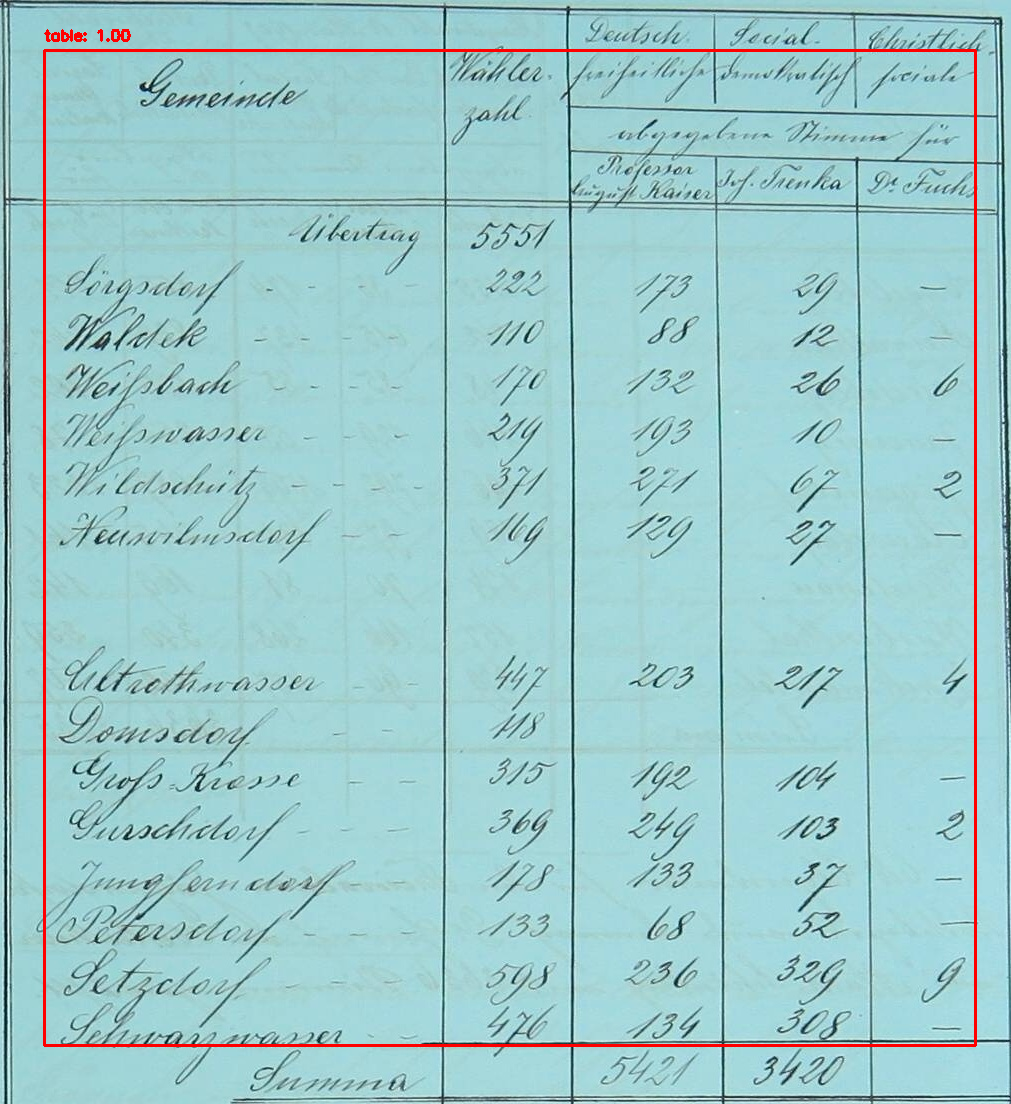 table: 1.00
Gemeinde Wähler- zahl Deutsch- freiheitliche Social- demokratisch Christlich- sociale
abgegebene Stimme für
Professor August Kaiser Joh. Trenka Dr. Fuchs
Übertrag 5551
Sörgsdorf - - - - 222 173 29 —
Waldek - - - - 110 88 12 —
Weißbach - - - 170 132 26 6
Weißwasser - - - 219 193 10 —
Wildschütz - - - - 371 271 67 2
Neuwilmsdorf - - 169 129 27 —
Altrothwasser - - 447 203 217 4
Domsdorf - - 118
Groß-Krosse - - 315 192 104 —
Gurschdorf - - - 369 249 103 2
Jungferndorf - 178 133 37 —
Petersdorf - - - 133 68 52 —
Setzdorf - - - - 598 236 329 9
Schwarzwasser - - 476 134 308 —
Summa 5421 3420